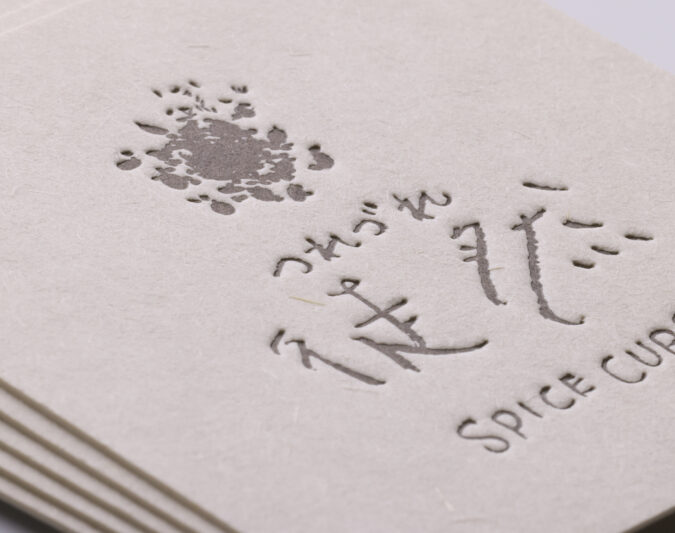 つれづれ
徒然
SPICE CUR